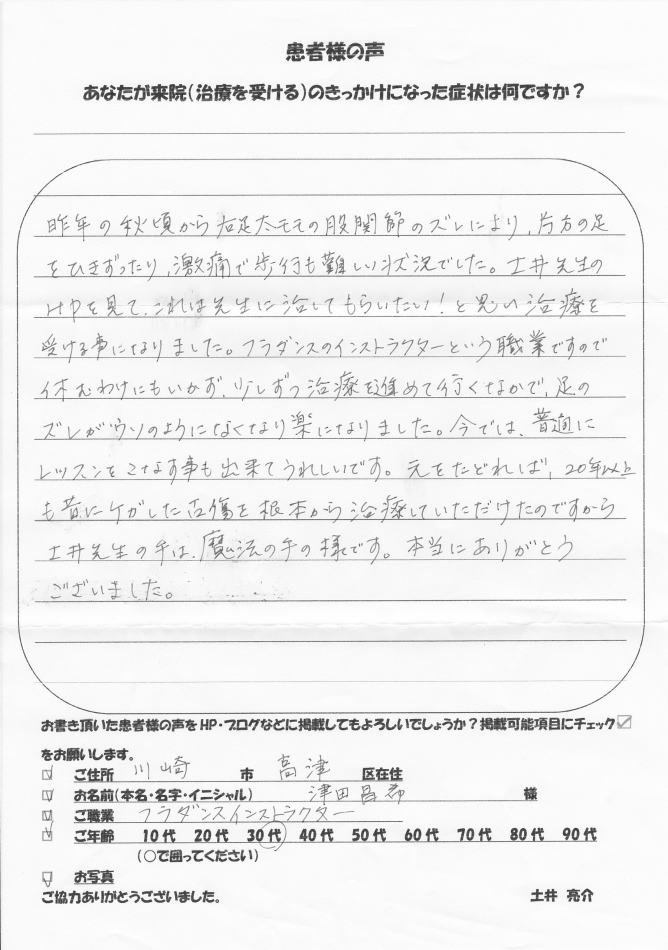 患者様の声
あなたが来院(治療を受ける)のきっかけになった症状は何ですか?
昨年の秋頃から右足太モモの股関節のズレにより、片方の足
をひきずったり、激痛で歩行も難しい状況でした。土井先生の
HPを見て、これは先生に治してもらいたい!と思い治療を
受ける事になりました。フラダンスのインストラクターという職業ですので
休むわけにもいかず、少しずつ治療を進めて行くなかで、足の
ズレがウソのようになくなり楽になりました。今では、普通に
レッスンをこなす事も出来てうれしいです。元をたどれば、20年以上
も昔にケガした古傷を根本から治療していただけたのですから
土井先生の手は、魔法の手の様です。本当にありがとう
ございました。
お書き頂いた患者様の声をHP・ブログなどに掲載してもよろしいでしょうか?掲載可能項目にチェック☑
をお願いします。
☑ ご住所 川崎 市 高津 区在住
☑ お名前(本名・名字・イニシャル) 津田昌希 様
☑ ご職業 フラダンスインストラクター
☑ ご年齢 10代 20代 30代 40代 50代 60代 70代 80代 90代
(○で囲ってください)
☑ お写真
ご協力ありがとうございました。 土井 亮介